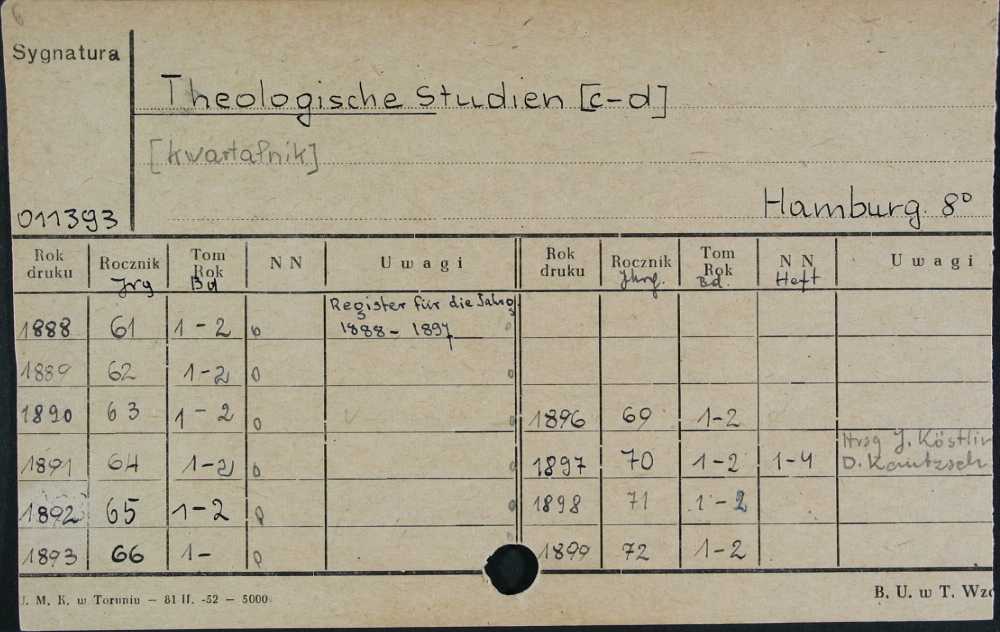 Sygnatura
Theologische Studien [c-d]
[kwartalnik]
011393
Hamburg. 8°
Rok druku Rocznik Jrg Tom Rok Bd N N U w a g i Rok druku Rocznik Jhrg. Tom Rok Bd. N N Heft U w a g i
Register für die Jahrg.
1888 61 1-2 0 1888-1897
1889 62 1-2 0
1890 63 1-2 0 1896 69 1-2
Hrsg J. Köstlin
1891 64 1-2 0 1897 70 1-2 1-4 D. Kautzsch
1892 65 1-2 0 1898 71 1-2
1893 66 1- 0 1899 72 1-2
M. K. w Toruniu — 81 II. -52 — 5000
B. U. w T. Wzó